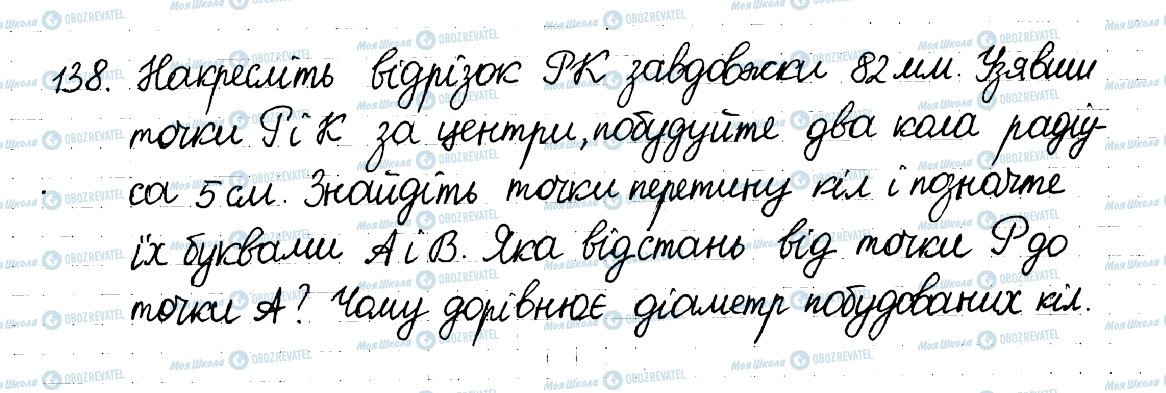 138. Накресліть відрізок РК завдовжки 82 мм. Узявши
точки Р і К за центри, побудуйте два кола радіу-
са 5 см. Знайдіть точки перетину кіл і позначте
їх буквами А і В. Яка відстань від точки Р до
точки А? Чому дорівнює діаметр побудованих кіл.